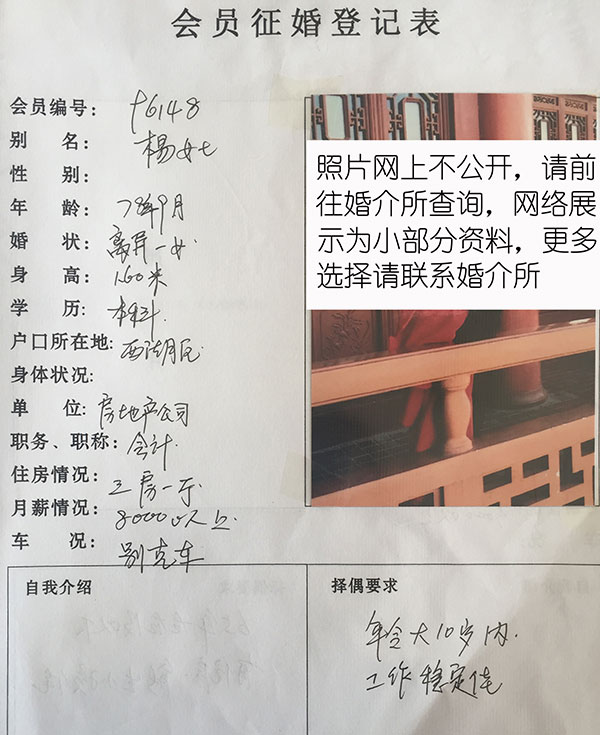 会员征婚登记表
会员编号: 96148
别 名: 杨女士
性 别:
年 龄: 78年9月
婚 状: 离异一女
身 高: 1.60米
学 历: 本科
户口所在地: 西湖区
身体状况:
单 位: 房地产公司
职务、职称: 会计
住房情况: 三房一厅
月薪情况: 8000以上
车 况: 别克车
照片网上不公开，请前
往婚介所查询，网络展
示为小部分资料，更多
选择请联系婚介所
自我介绍
择偶要求
年令大10岁内.
工作稳定住